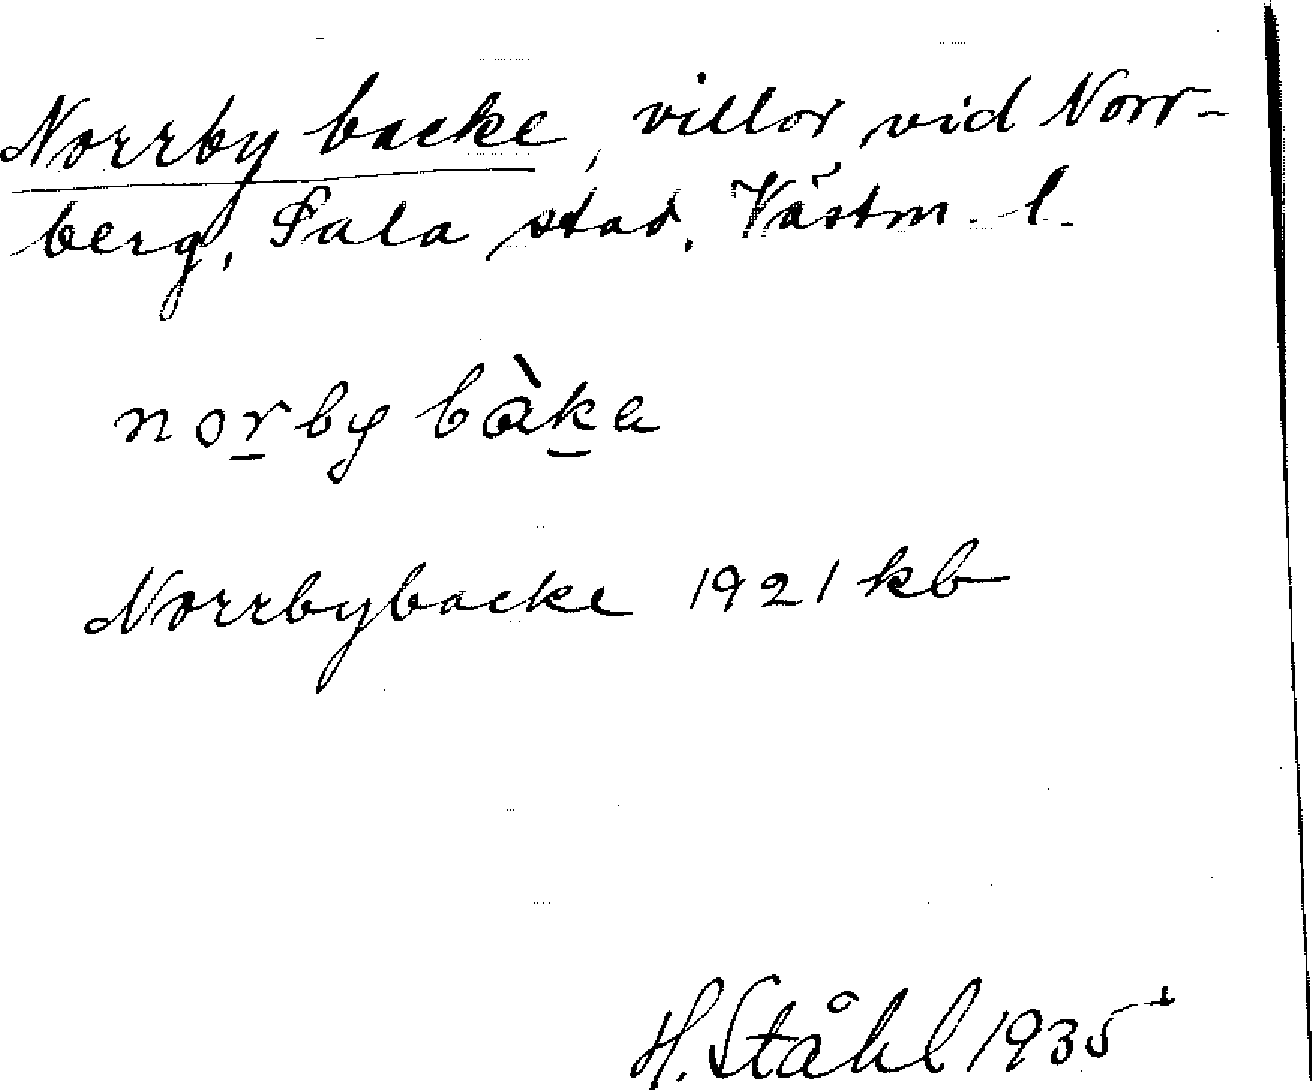 Norrby backe, villor vid Norr-
berg, Sala stad. Västm. l.
norby bàka
Norrbybacke 1921 kb
H. Ståhl 1935